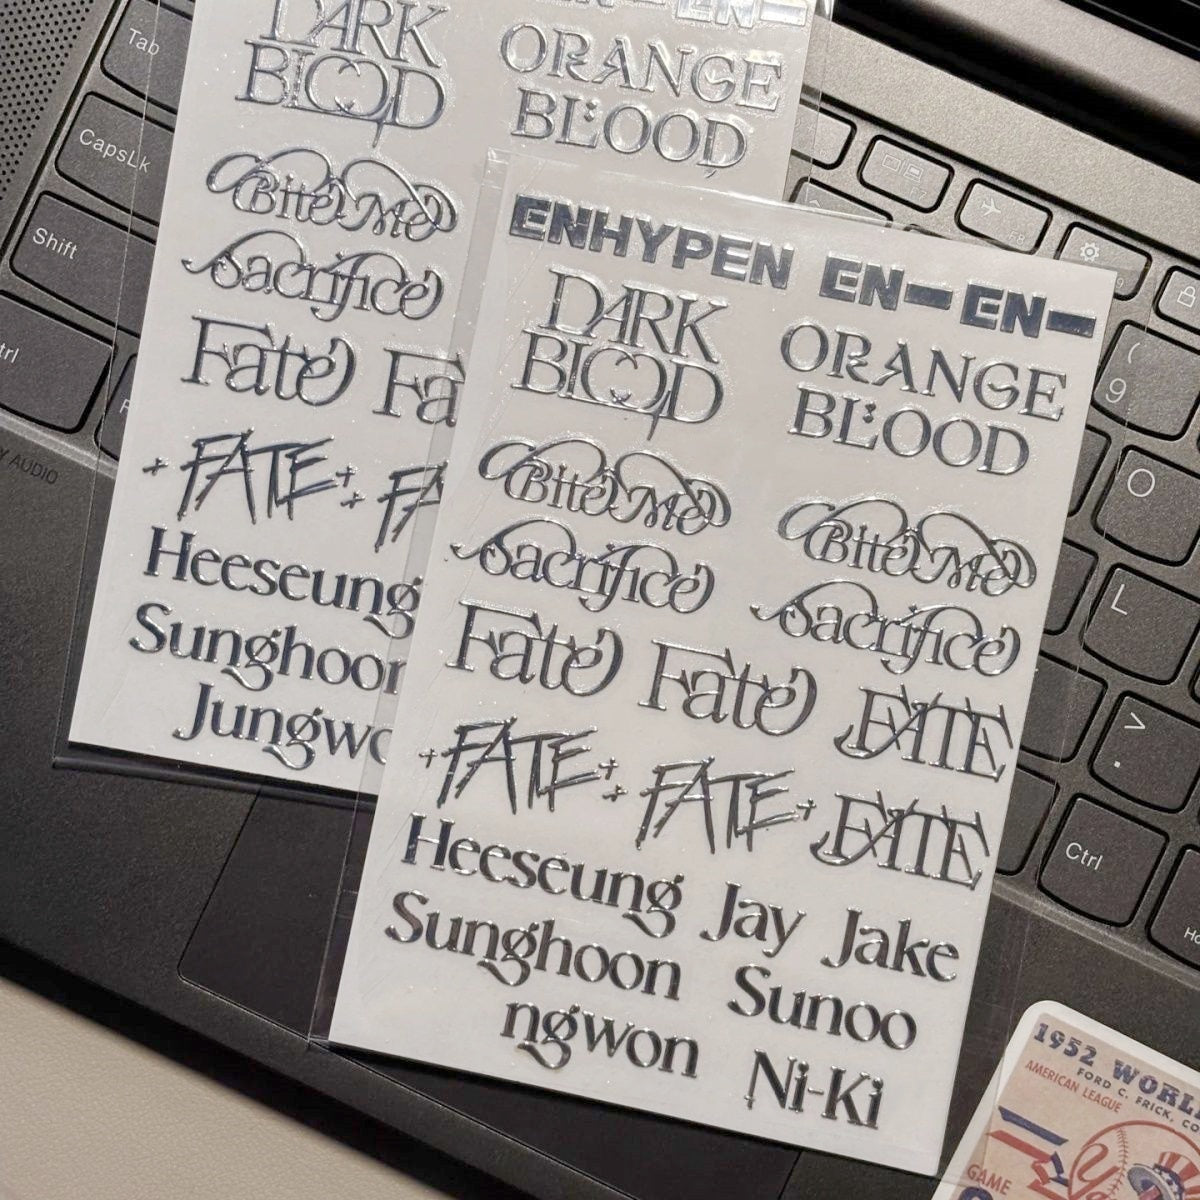 EN-
DARK
BLOOD
ORANGE
BLOOD
Bite Me
Sacrifice
Fate Fa
FATE FA
Heeseung
Sunghoon
Jungwo
ENHYPEN EN- EN-
DARK
BLOOD
ORANGE
BLOOD
Bite Me Bite Me
Sacrifice Sacrifice
Fate Fate FATE
FATE FATE FATE
Heeseung Jay Jake
Sunghoon Sunoo
ngwon Ni-Ki
Tab
CapsLk
Shift
trl
Y AUDIO
F8
( 9
O
L
> .
Ctrl
1952 WORL
FORD C. FRICK, CO
AMERICAN LEAGUE
GAME